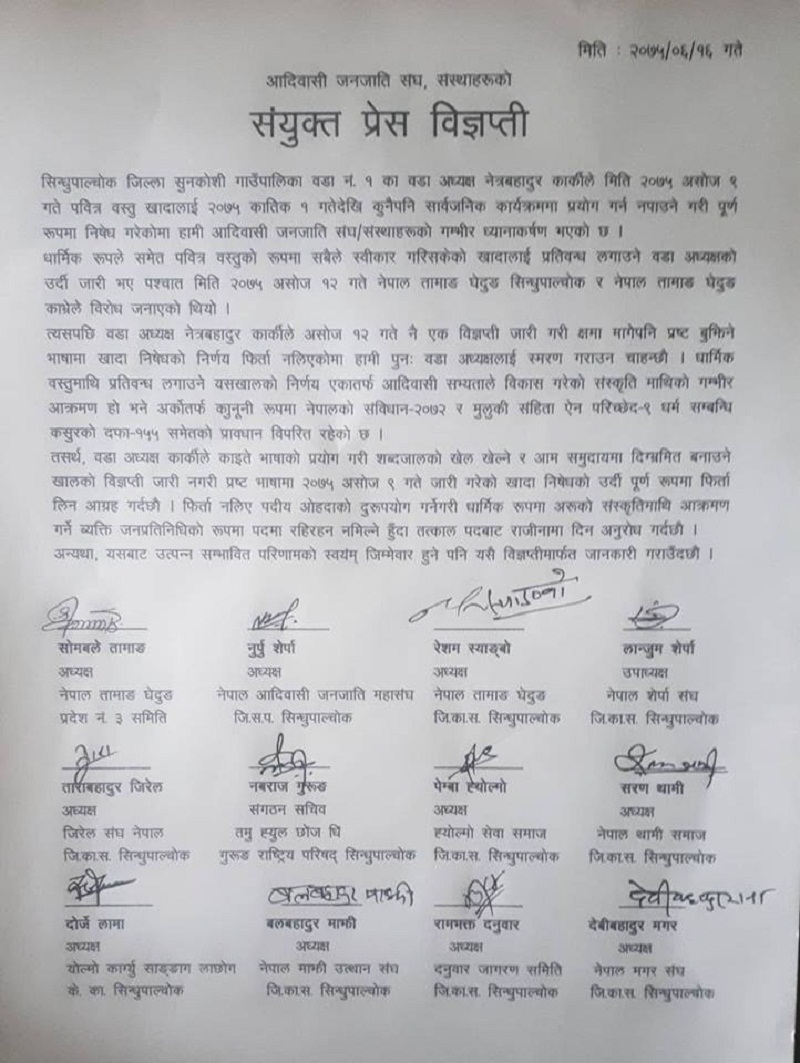 मिति : २०७५/०६/१६ गते
आदिवासी जनजाति संघ, संस्थाहरूको
संयुक्त प्रेस विज्ञप्ती
सिन्धुपाल्चोक जिल्ला सुनकोशी गाउँपालिका वडा नं. १ का वडा अध्यक्ष नेत्रबहादुर कार्कीले मिति २०७५ असोज ९
गते पवित्र वस्तु खादालाई २०७५ कातिक १ गतेदेखि कुनैपनि सार्वजनिक कार्यक्रममा प्रयोग गर्न नपाउने गरी पूर्ण
रूपमा निषेध गरेकोमा हामी आदिवासी जनजाति संघ/संस्थाहरूको गम्भीर ध्यानाकर्षण भएको छ ।
धार्मिक रूपले समेत पवित्र वस्तुको रूपमा सबैले स्वीकार गरिसकेको खादालाई प्रतिवन्ध लगाउने वडा अध्यक्षको
उर्दी जारी भए पश्चात मिति २०७५ असोज १२ गते नेपाल तामाङ घेदुङ सिन्धुपाल्चोक र नेपाल तामाङ घेदुङ
काभ्रेले विरोध जनाएको थियो ।
त्यसपछि वडा अध्यक्ष नेत्रबहादुर कार्कीले असोज १२ गते नै एक विज्ञप्ती जारी गरी क्षमा मागेपनि प्रष्ट बुझिने
भाषामा खादा निषेधको निर्णय फिर्ता नलिएकोमा हामी पुनः वडा अध्यक्षलाई स्मरण गराउन चाहन्छौ । धार्मिक
वस्तुमाथि प्रतिवन्ध लगाउने यसखालको निर्णय एकातर्फ आदिवासी सभ्यताले विकास गरेको संस्कृति माथिको गम्भीर
आक्रमण हो भने अर्कोतर्फ कानूनी रूपमा नेपालको संविधान-२०७२ र मुलुकी संहिता ऐन परिच्छेद-९ धर्म सम्बन्धि
कसुरको दफा-१५५ समेतको प्रावधान विपरित रहेको छ ।
तसर्थ, वडा अध्यक्ष कार्कीले काइते भाषाको प्रयोग गरी शब्दजालको खेल खेल्ने र आम समुदायमा दिग्भ्रमित बनाउने
खालको विज्ञप्ती जारी नगरी प्रष्ट भाषामा २०७५ असोज ९ गते जारी गरेको खादा निषेधको उर्दी पूर्ण रूपमा फिर्ता
लिन आग्रह गर्दछौ । फिर्ता नलिए पदीय ओहदाको दुरूपयोग गर्नेगरी धार्मिक रूपमा अरुको संस्कृतिमाथि आक्रमण
गर्ने ब्यक्ति जनप्रतिनिधिको रूपमा पदमा रहिरहन नमिल्ने हुँदा तत्काल पदबाट राजीनामा दिन अनुरोध गर्दछौ ।
अन्यथा, यसबाट उत्पन्न सम्भावित परिणामको स्वयंम् जिम्मेवार हुने पनि यसै विज्ञप्तीमार्फत जानकारी गराउँदछौ ।
सोमबले तामाङ नुर्पु शेर्पा रेशम स्याङ्बो लान्जुम शेर्पा
अध्यक्ष अध्यक्ष अध्यक्ष उपाध्यक्ष
नेपाल तामाङ घेदुङ नेपाल आदिवासी जनजाति महासंघ नेपाल तामाङ घेदुङ नेपाल शेर्पा संघ
प्रदेश नं. ३ समिति जि.स.प. सिन्धुपाल्चोक जि.का.स. सिन्धुपाल्चोक जि.का.स. सिन्धुपाल्चोक
ताराबहादुर जिरेल नबराज गुरूङ पेम्बा ह्योल्मो सरण थामी
अध्यक्ष संगठन सचिव अध्यक्ष अध्यक्ष
जिरेल संघ नेपाल तमु ह्युल छोज धि ह्योल्मो सेवा समाज नेपाल थामी समाज
जि.का.स. सिन्धुपाल्चोक गुरूङ राष्ट्रिय परिषद् सिन्धुपाल्चोक जि.का.स. सिन्धुपाल्चोक जि.का.स. सिन्धुपाल्चोक
बलबहादुर माझी
दोर्जे लामा बलबहादुर माझी रामभक्त दनुवार देबीबहादुर मगर
अध्यक्ष अध्यक्ष अध्यक्ष अध्यक्ष
योल्मो कार्ग्यु साङ्गाग लाछोग नेपाल माझी उत्थान संघ दनुवार जागरण समिति नेपाल मगर संघ
के. का. सिन्धुपाल्चोक जि.का.स. सिन्धुपाल्चोक जि.का.स. सिन्धुपाल्चोक जि.का.स. सिन्धुपाल्चोक